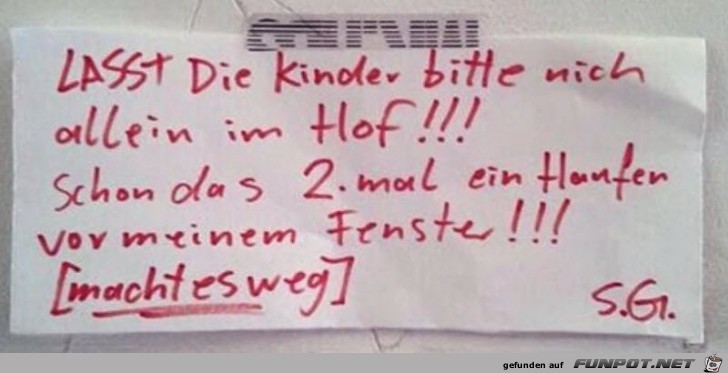 LASST Die Kinder bitte nich
allein im Hof!!!
Schon das 2. mal ein Haufen
vor meinem Fenster!!!
[macht es weg]
S.G.
gefunden auf FUNPOT.NET